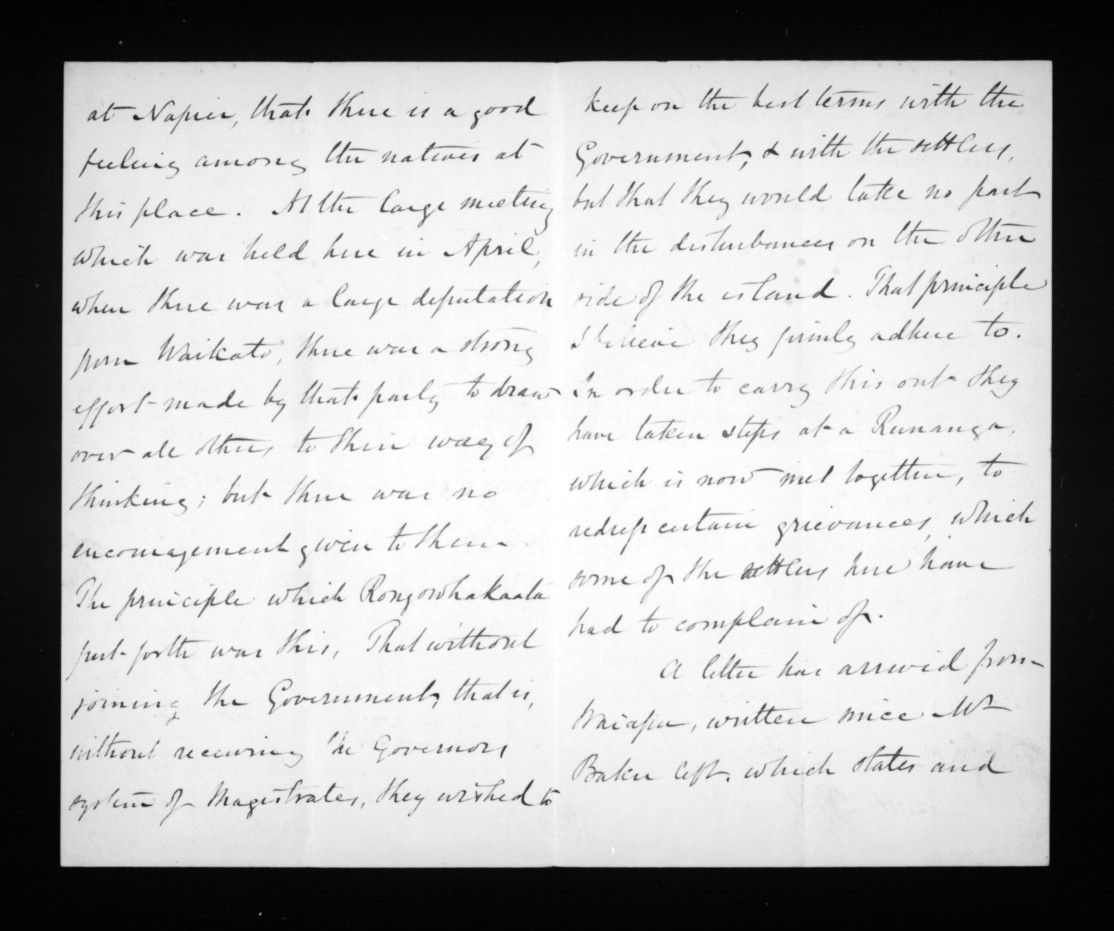 at Napier, that there is a good
feeling among the natives at
this place. At the large meeting
which was held here in April,
when there was a large deputation
from Waikato, there was a strong
effort made by that party to draw
over all others to their way of
thinking; but there was no
encouragement given to them.
The principle which Rongowhakaata
put forth was this, That without
joining the Government, that is,
without receiving the Governors
system of Magistrates, they wished to
keep on the best terms with the
Government, & with the settlers,
but that they would take no part
in the disturbances on the other
side of the island. That principle
I believe they firmly adhere to.
In order to carry this out they
have taken steps at a Runanga,
which is now met together, to
redress certain grievances, which
some of the settlers here have
had to complain of.
A letter has arrived from
Waiapu, written since Mr
Baker left, which states and